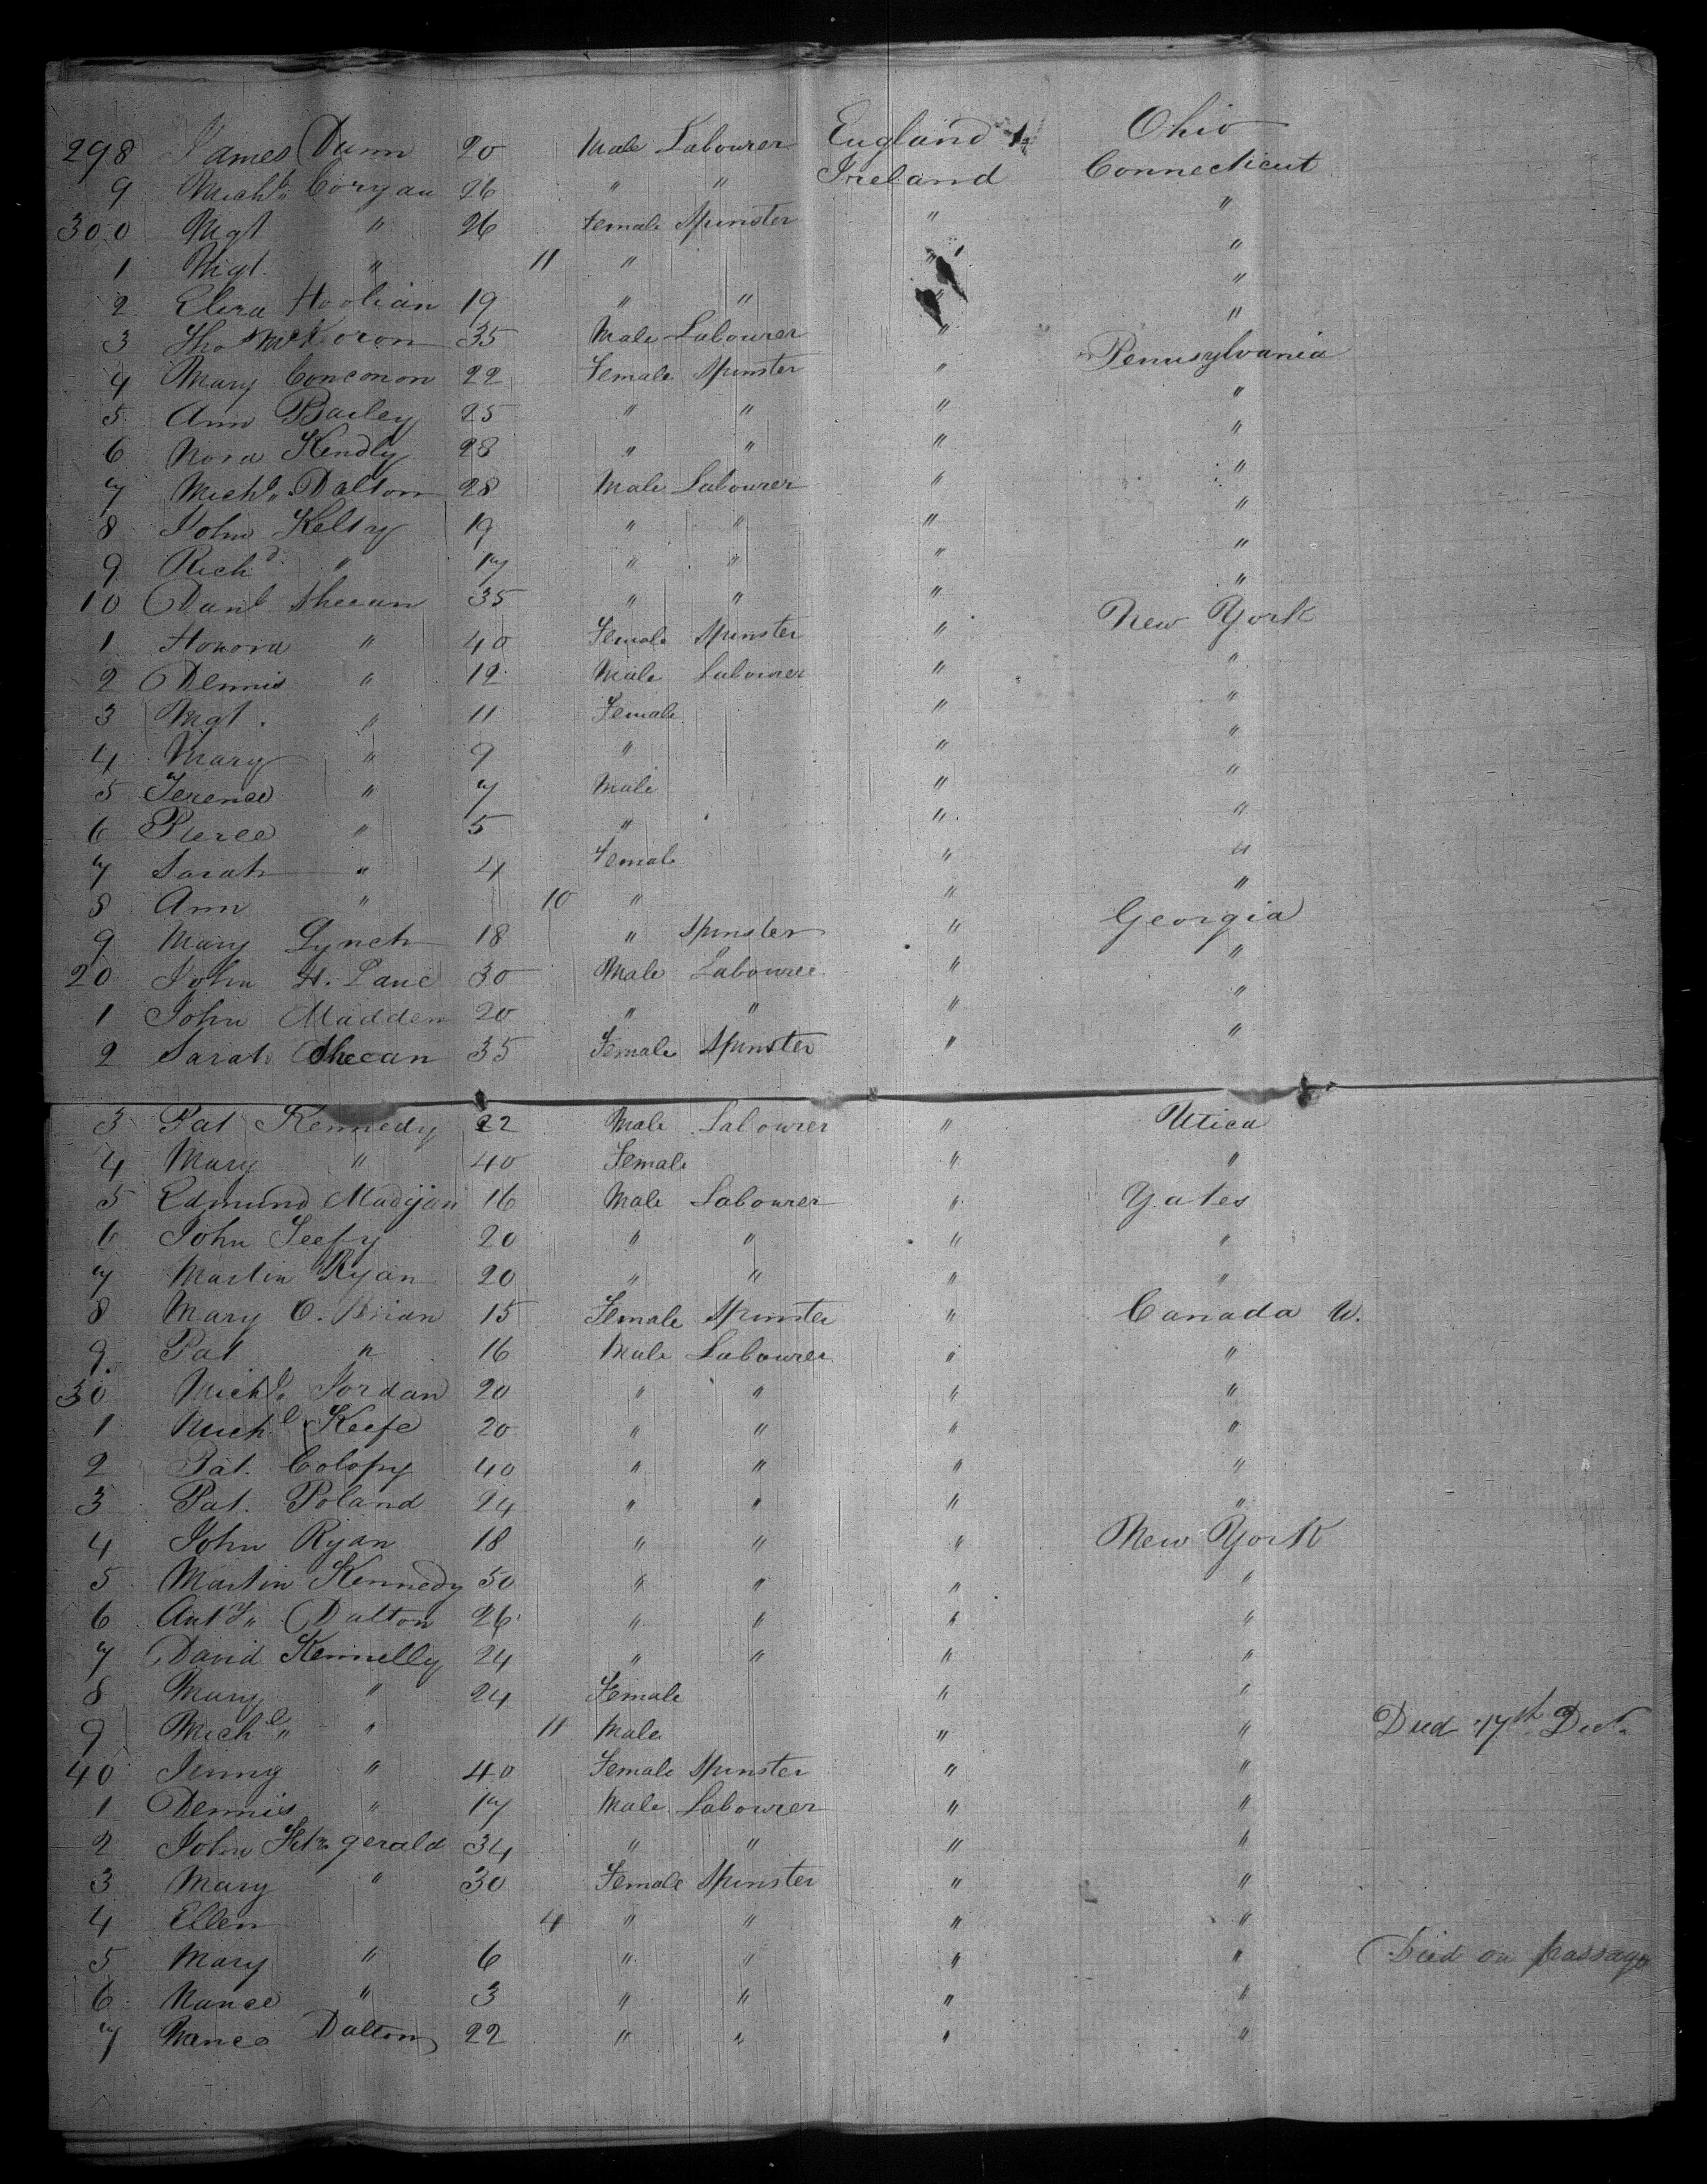 298 James Dunn 20 Male Labourer England Ohio
9 Michl. Coryan 26 " " Ireland Connecticut
300 Mgt " 26 Female Spinster " "
1 Mgt. " 11 " " "
2 Eliza Hoolian 19 " " " "
3 Thos McKoron 35 Male Labourer " "
4 Mary Conconon 22 Female Spinster " Pennsylvania
5 Ann Bailey 25 " " " "
6 Nora Kendly 28 " " " "
7 Michl. Dalton 28 Male Labourer " "
8 John Keltry 19 " " " "
9 Richd. " 17 " " " "
10 Danl Sheean 35 " " " "
1 Honora " 40 Female Spinster " New York
2 Dennis " 12 Male Labourer " "
3 Mgt. " 11 Female " "
4 Mary " 9 " " "
5 Terence " 7 Male " "
6 Pierce " 5 " " "
7 Sarah " 4 Female " "
8 Ann " 10 " " "
9 Mary Lynch 18 " Spinster " Georgia
20 John H. Pane 30 Male Labourer " "
1 John Madden 20 " " " "
2 Sarah Sheean 35 Female Spinster " "
3 Pat Kennedy 22 Male Labourer " Utica
4 Mary " 40 Female " "
5 Edmund Madijan 16 Male Labourer " Yates
6 John Seefy 20 " " " "
7 Martin Ryan 20 " " " "
8 Mary O. Brian 15 Female Spinster " Canada W.
9. Pat " 16 Male Labourer " "
30 Michl. Jordan 20 " " " "
1 Michl Keefe 20 " " " "
2 Pat. Colopy 40 " " " "
3 Pat. Poland 24 " " " "
4 John Ryan 18 " " " New York
5 Martin Kennedy 50 " " " "
6 Anty. Dalton 26 " " " "
7 David Kennelly 24 " " " "
8 Mary " 24 Female " "
9 Michl. " 11 Male " " Died 17th Dec.
40 Jenny " 40 Female Spinster " "
1 Dennis " 17 Male Labourer " "
2 John Fitzgerald 34 " " " "
3 Mary " 30 Female Spinster " "
4 Ellen 4 " " " "
5 Mary " 6 " " " " Died on passage
6 Nance " 3 " " " "
7 Nance Dalton 22 " " " "